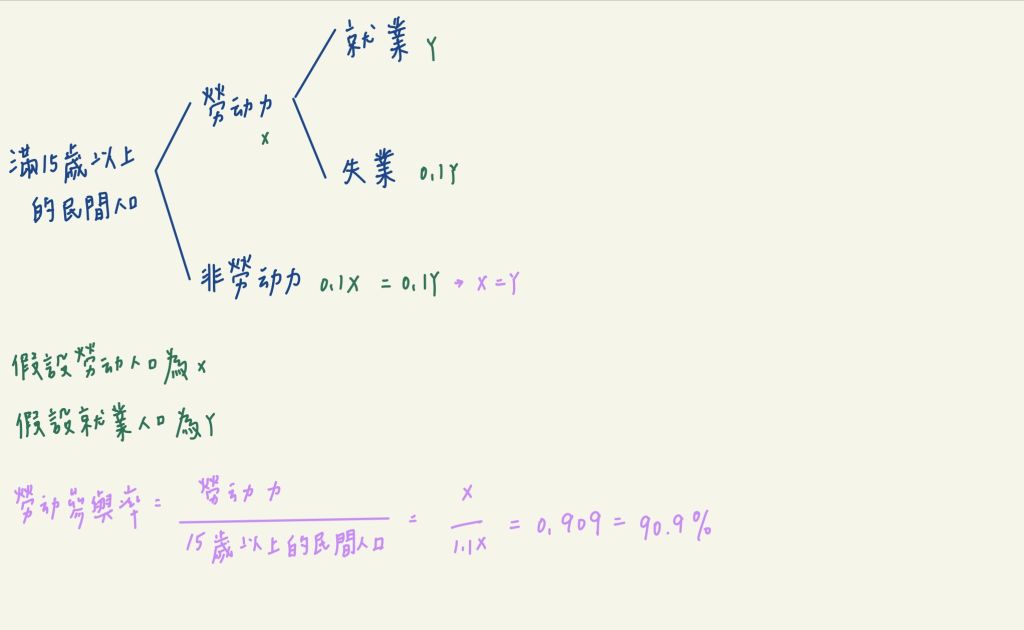 就業 Y
勞动力
x
滿15歲以上
的民間人口
失業 0.1Y
非勞动力 0.1X = 0.1Y → X = Y
假設勞动人口為x
假設就業人口為Y
勞动參與率 = 勞动力 / 15歲以上的民間人口 = X / 1.1X = 0.909 = 90.9%